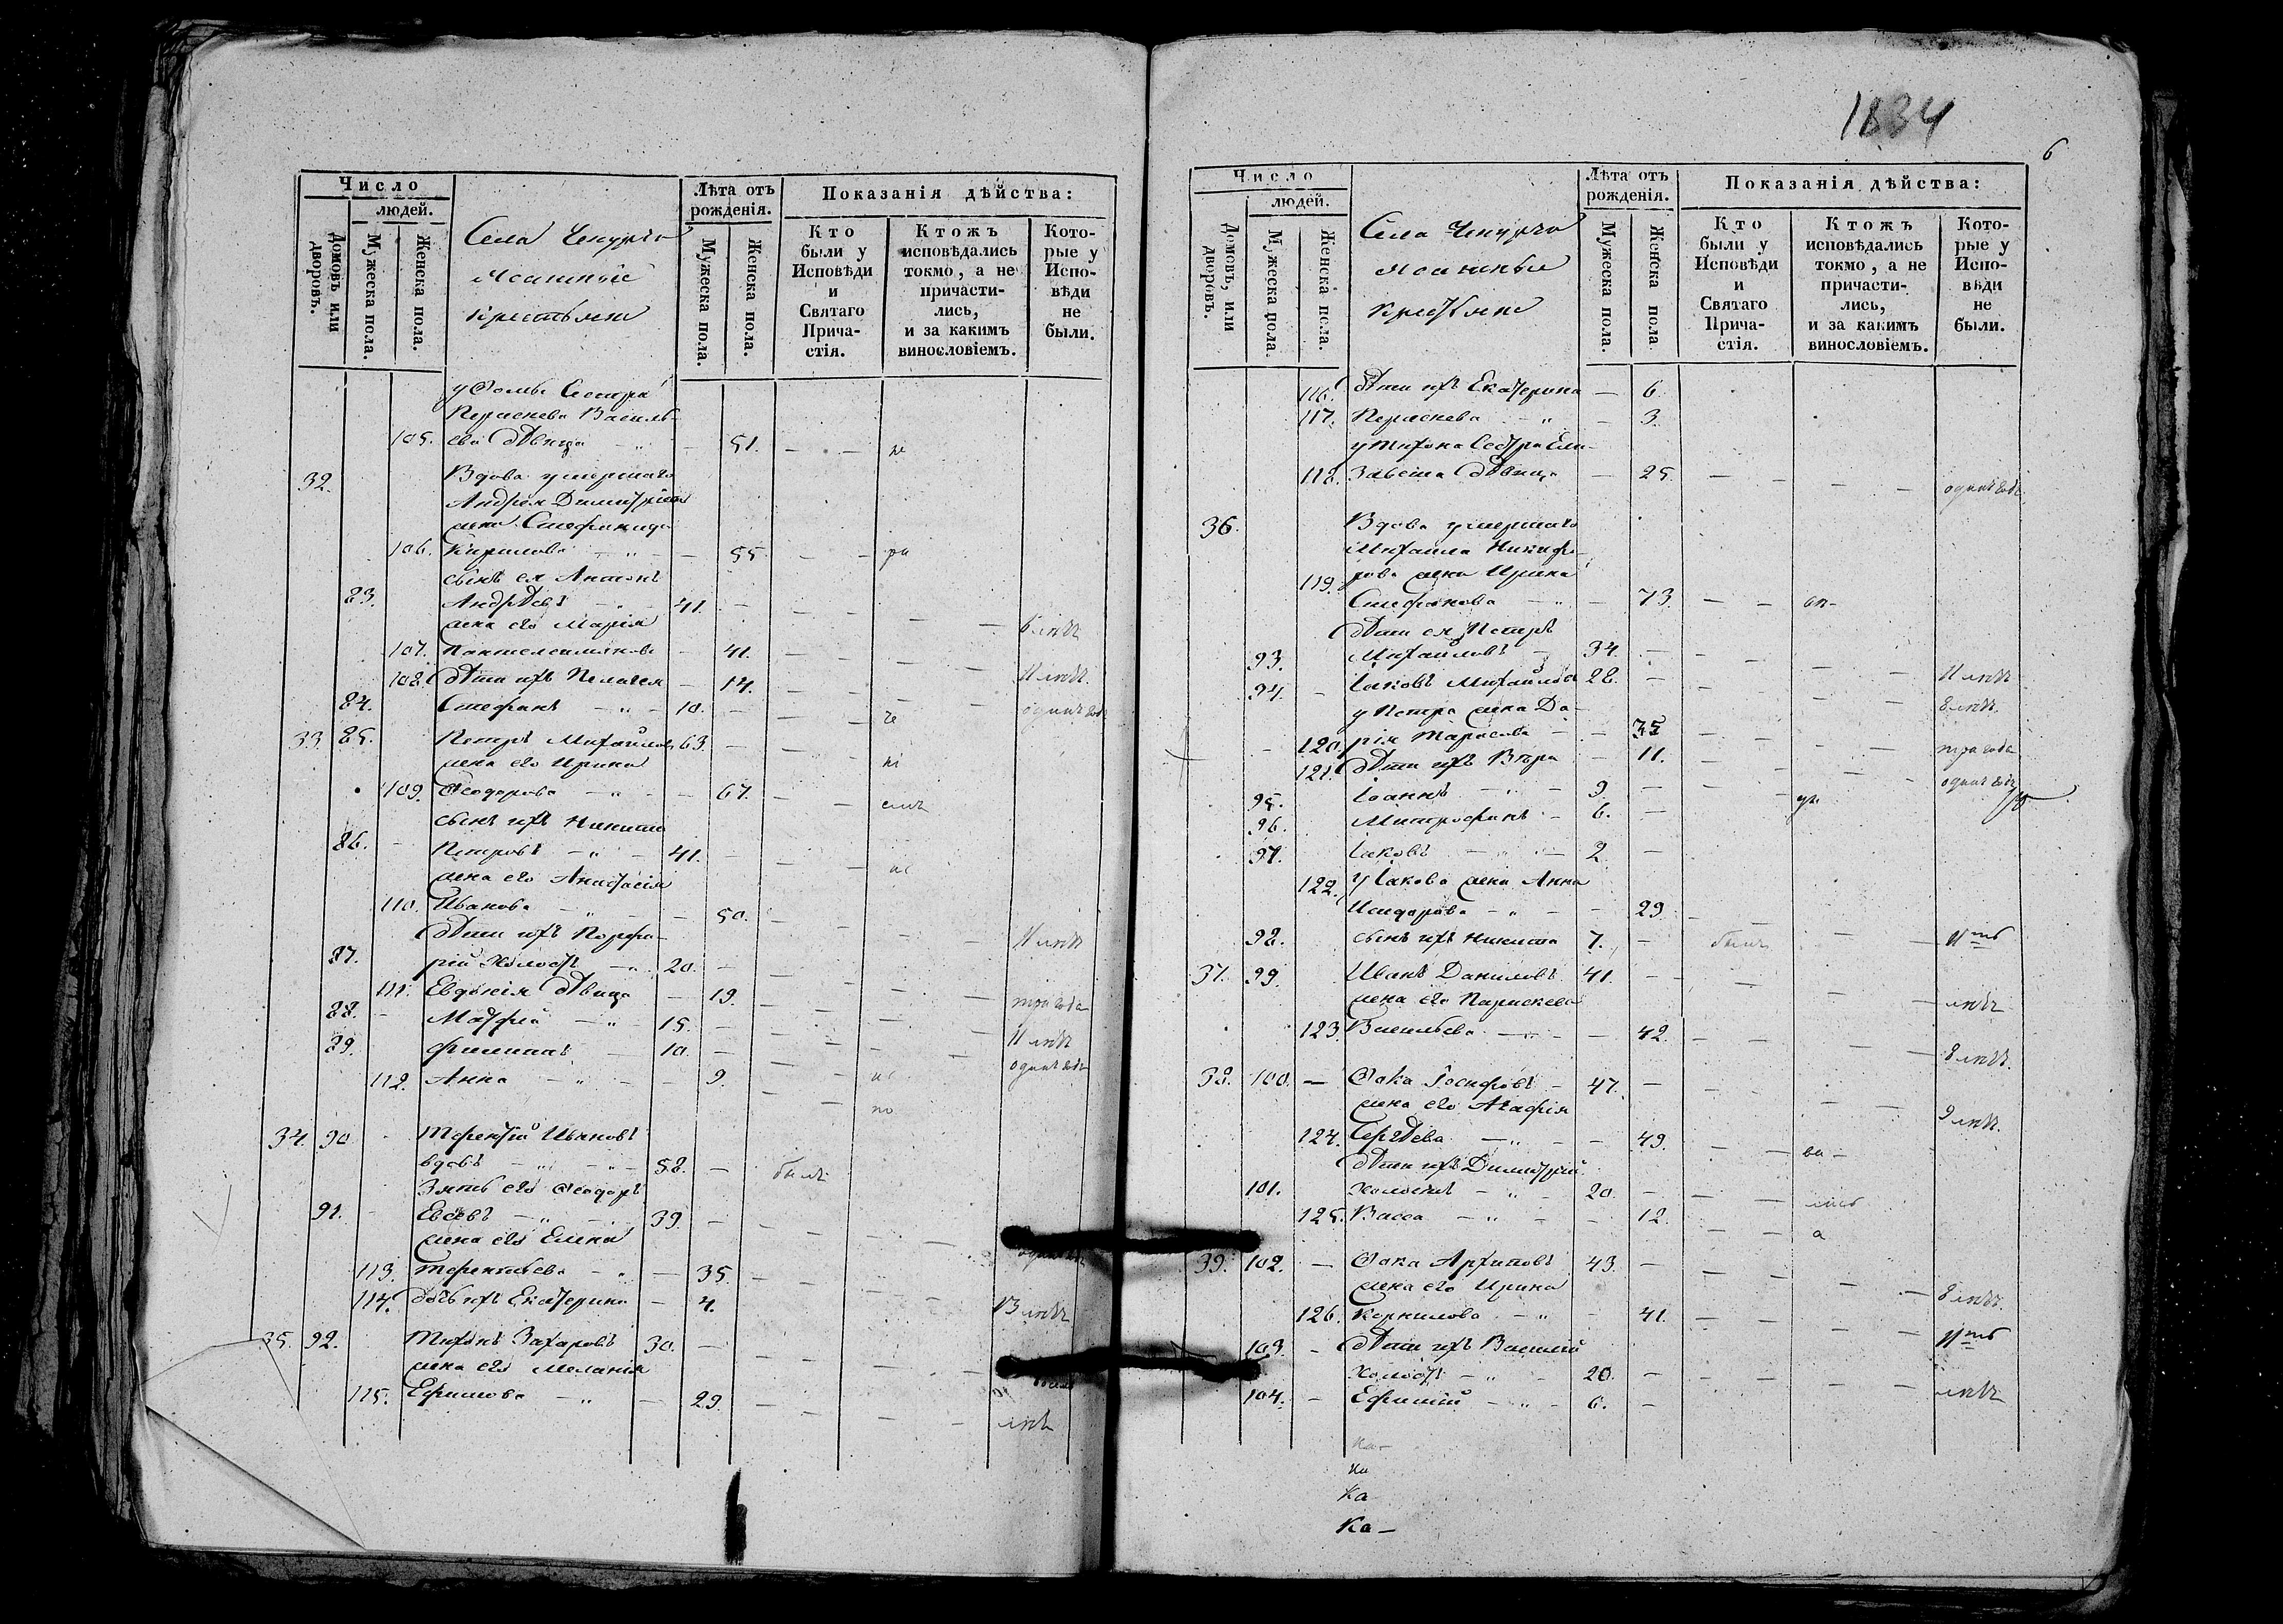 1834
6
Число
людей.
Домовъ или дворовъ.
Мужеска пола.
Женска пола.
Села Чекурча
ясашные
крестьяне
Лѣта отъ рожденія.
Мужеска пола.
Женска пола.
Показанія дѣйства:
Кто были у Исповѣди и Святаго Прича-стія.
Ктожъ исповѣдались токмо, а не причасти-лись, и за какимъ винословіемъ.
Кото-рые у Испо-вѣди не были.
у Фомы Сестра
Параскева Василь-
105. ева дѣвица — 51. — — не
32. Вдова умершаго
Андрея Димитріева
жена Стефанида
106. Кирилова — 55 — — ра
сынъ ея Антонъ
83. Андреевъ 41. —
жена его Марія 6 лѣтъ
107. Пантелеимонова — 41. —
108. дѣти ихъ Пелагея — 14. — 11 лѣтъ
84. Стефанъ — 10. — одинъ годъ
33. 85. Петръ Михайловъ 63. —
жена его Ирина
109. Феодорова — 67. —
сынъ ихъ Никита
86. Петровъ — 41. —
жена его Анастасія
110. Иванова — 50. —
дѣти ихъ Порфи-
87. рій холостъ — 20. — 11 лѣтъ
111. Евдокія дѣвица — 19. —
88. Матфей — 15. — три года
89. Филиппъ 10. — 11 лѣтъ
112. Анна — 9. одинъ годъ
по
34. 90 Терентій Ивановъ
вдовъ — 58. — былъ
Зять его Феодоръ
91. Евсевъ — 39. —
жена его Елена
113. Терентьева — 35. —
114. дочь ихъ Екатерина — 4. 13 лѣтъ
35. 92. Тихонъ Захаровъ 30. —
жена его Мелания
115. Ефимова — 29. — лѣтъ
Число
людей.
Домовъ, или дворовъ.
Мужеска пола.
Женска пола.
Села Чекурча
ясашные
крестьяне
Лѣта отъ рожденія.
Мужеска пола.
Женска пола
Показанія дѣйства:
Кто были у Исповѣди и Святаго Прича-стія.
Ктожъ исповѣдались токмо, а не причасти-лись, и за какимъ винословіемъ.
Кото-рые у Испо-вѣди не были.
116. дѣти ихъ Екатерина — 6.
117. Параскева — 3.
у Тихона Сестра Ели-
118. Завета дѣвица — 25. — одинъ годъ
36. Вдова умершаго
Михаила Никифо-
119. рова жена Ирина
Стефанова — 73. — —
дѣти ея Петръ
93. Михайловъ — 34. —
94. — Іаковъ Михайловъ 28. — 11 лѣтъ
у Петра жена Да- 8 лѣтъ
120. рія Тарасова — 35
121. дѣти ихъ Вѣра — 11. три года
95. Іоаннъ — 9 — одинъ годъ
96. Митрофанъ — 6. —
97. Іаковъ — 2 —
122. у Іакова жена Анна
Исидорова — 29
98. сынъ ихъ Никита 7. — былъ 11ть
37. 99. Иванъ Даниловъ 41. —
жена его Параскева лѣтъ
123. Васильева — 42. —
8 лѣтъ.
38. 100. — Фока Іосифовъ — 47. —
жена его Агафія 9 лѣтъ.
124. Сергѣева — 49. —
дѣти ихъ Димитрій
101. холостъ — 20. —
125. Васса — 12. а
39. 102. — Фока Архиповъ 43. —
жена его Ирина 8 лѣтъ.
126. Корнилова — 41. — 11ть
103. — дѣти ихъ Василій
холостъ — 20. — лѣтъ
104. — Ефимій — 6. —
Ка
Ка —